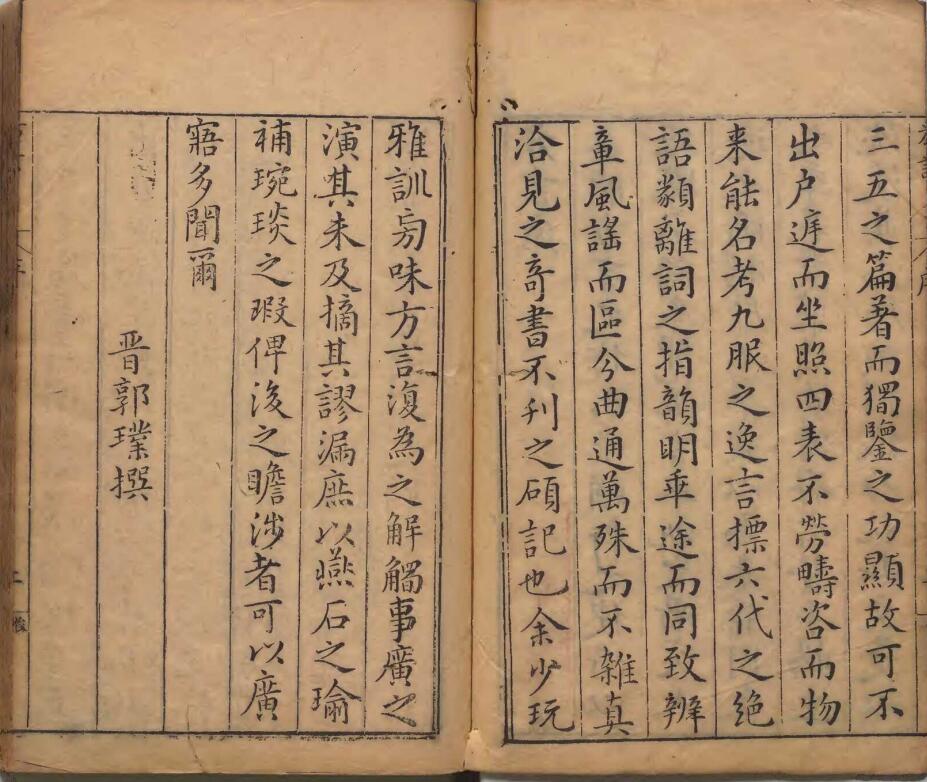 三五之篇著而獨鑒之功顯故可不
出户遅而坐照四表不勞疇咨而物
来能名考九服之逸言摽六代之絶
語類離詞之指韻明乖途而同致辨
章風謡而區分曲通萬殊而不雑真
洽見之竒書不刋之碩記也余少玩
雅訓旁味方言復為之解觸事廣之
演其未及摘其謬漏庶以燕石之瑜
補琬琰之瑕俾後之瞻渉者可以廣
寤多聞爾
晋郭璞撰